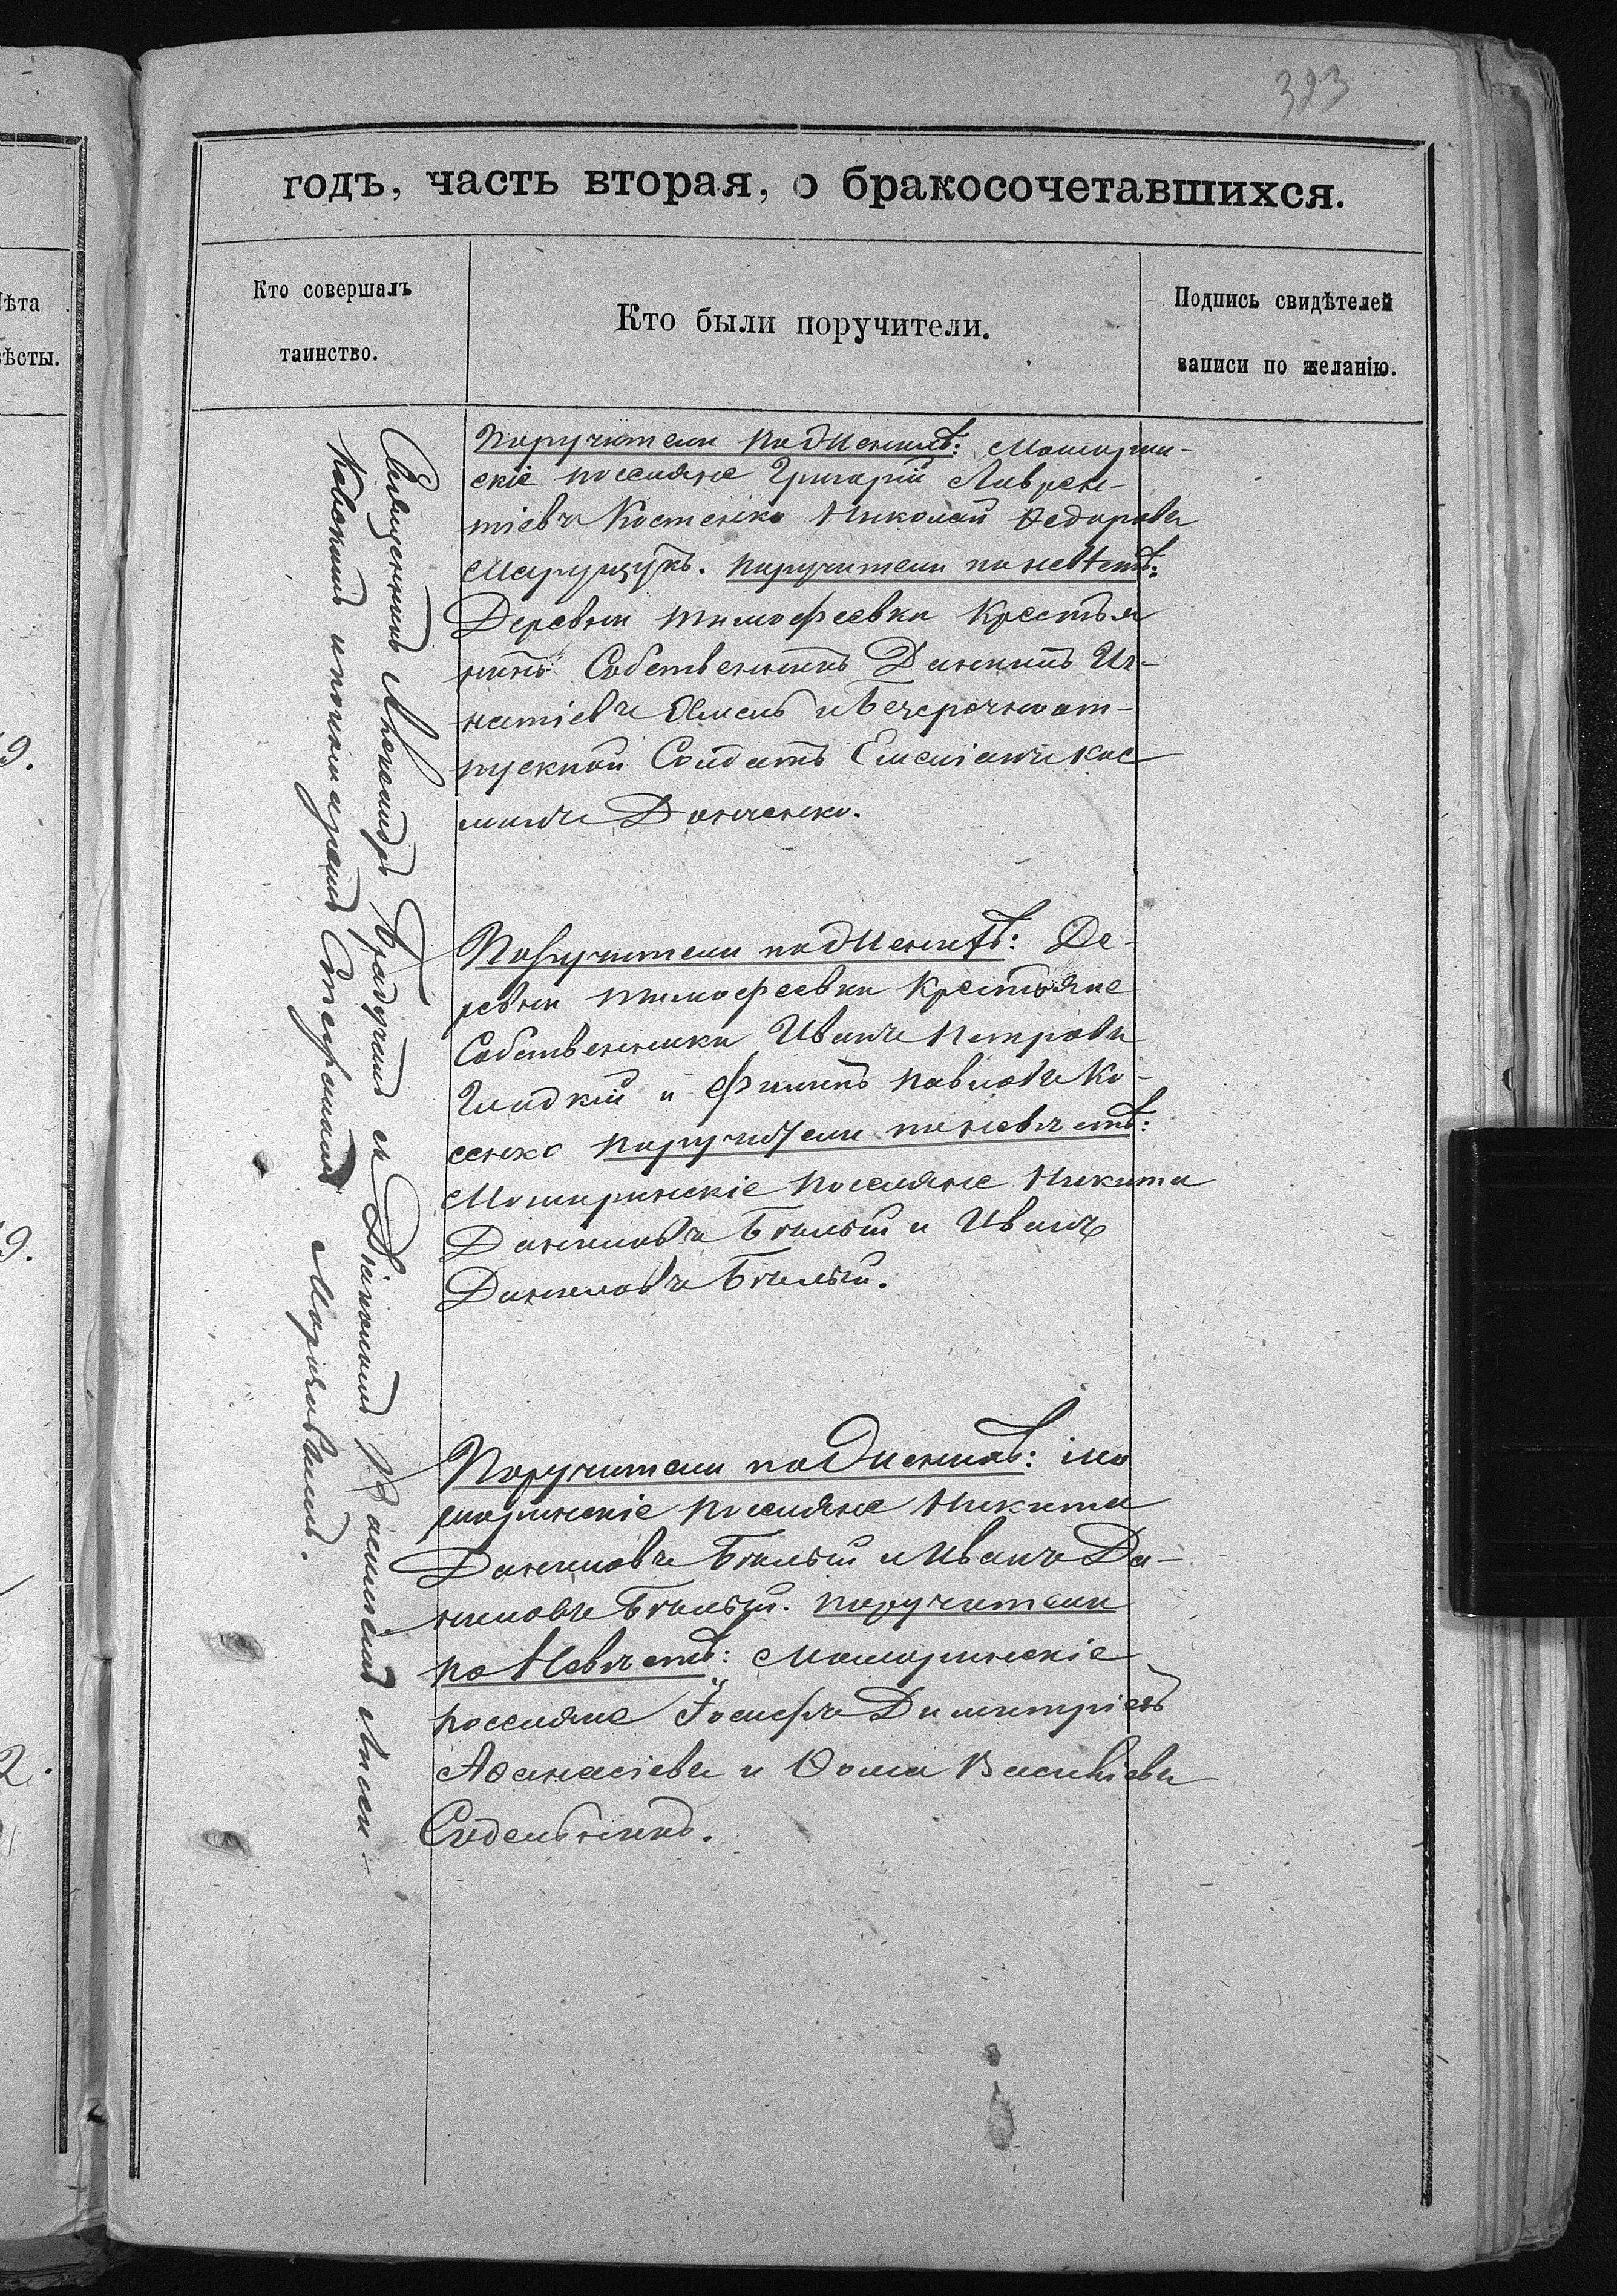 323
годъ, часть вторая, о бракосочетавшихся.
Кто совершалъ
таинство.
Кто были поручители.
Подпись свидѣтелей
записи по желанію.
ѣта
ѣсты.
9.
9.
2.
Священникъ Александръ съ Діакономъ Василіемъ Лисен-
ковскимъ и пономаремъ Стефаномъ
Поручители по Женихѣ: Мошорин-
скіе поселяне Григорій Лаврен-
тіевъ Костенко Николай Ѳедоровъ
Марущукъ. поручители по невѣстѣ:
Деревни тимофеевки Крестья
нинъ Собственникъ Даніилъ Иг-
натіевъ и безсрочноот-
пускной Солдатъ Емеліанъ Кос
минъ Донченко.
Поручители по Женихѣ: Де-
ревни тимофеевки Крестьяне
Собственники Иванъ Петровъ
Гладкій и Филипъ Павловъ Ко-
сенко поручители по невѣстѣ:
Мошоринскіе поселяне Никита
Даниловъ Бѣлый и Иванъ
Даниловъ Бѣлый.
Поручители по Женихѣ: Мо
шоринскіе поселяне Никита
Даниловъ Бѣлый и Иванъ Да-
ниловъ Бѣлый. поручители
по Невѣстѣ: Мошоринскіе
поселяне Іосифъ Димитріевъ
Аѳанасіевъ и Ѳома Василіевъ
Сидельникъ.